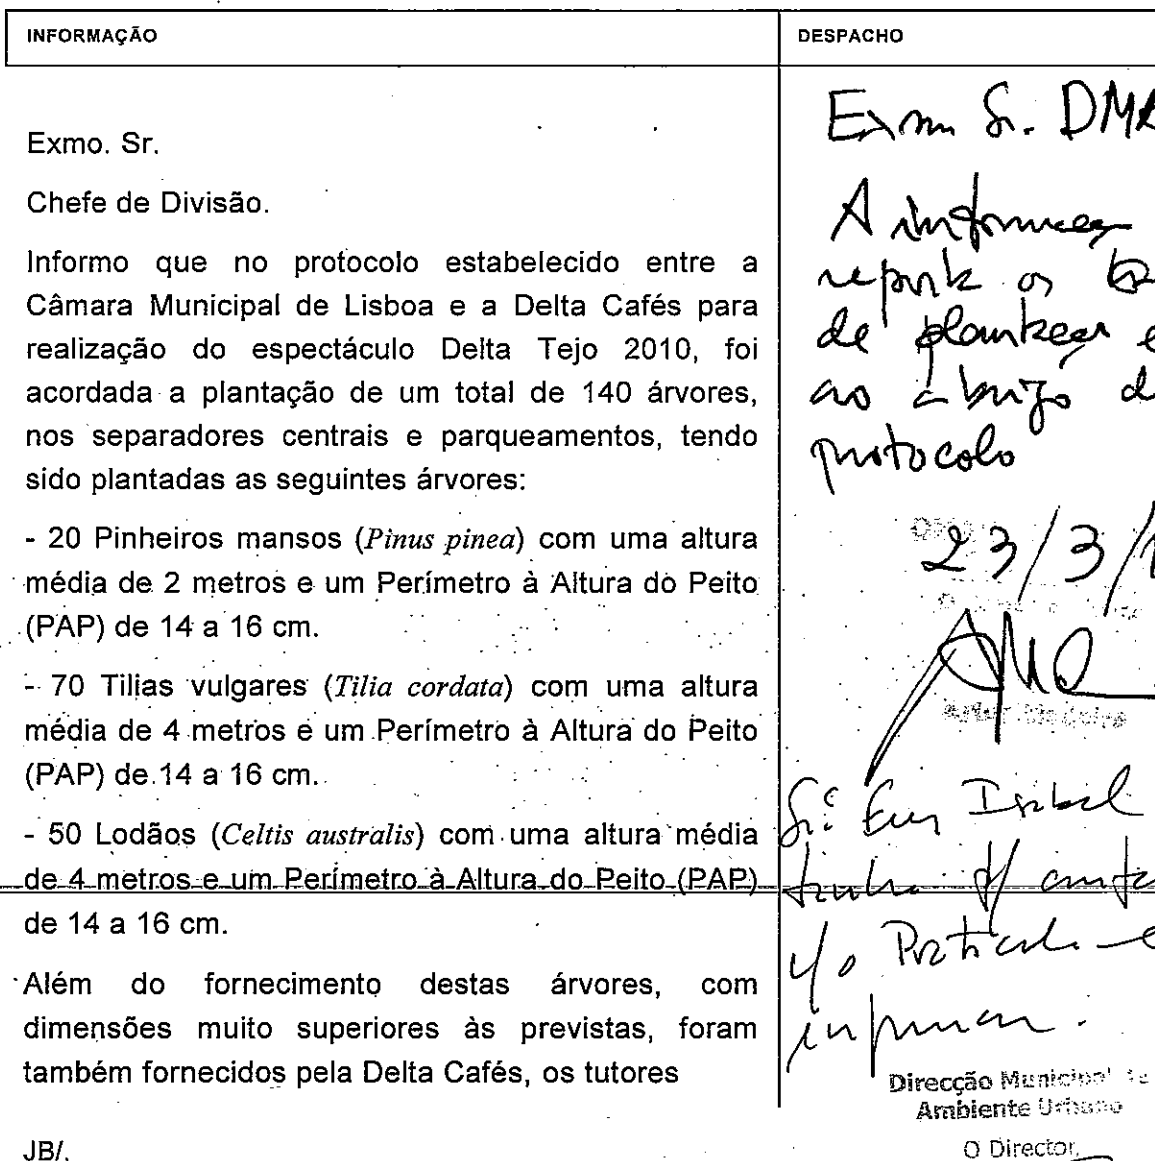 INFORMAÇÃO
DESPACHO
Exmo. Sr.
Chefe de Divisão.
Informo que no protocolo estabelecido entre a
Câmara Municipal de Lisboa e a Delta Cafés para
realização do espectáculo Delta Tejo 2010, foi
acordada a plantação de um total de 140 árvores,
nos separadores centrais e parqueamentos, tendo
sido plantadas as seguintes árvores:
- 20 Pinheiros mansos (Pinus pinea) com uma altura
média de 2 metros e um Perímetro à Altura do Peito
(PAP) de 14 a 16 cm.
- 70 Tilias vulgares (Tilia cordata) com uma altura
média de 4 metros e um Perímetro à Altura do Peito
(PAP) de 14 a 16 cm.
- 50 Lodãos (Celtis australis) com uma altura média
de 4 metros e um Perímetro à Altura do Peito (PAP)
de 14 a 16 cm.
Além do fornecimento destas árvores, com
dimensões muito superiores às previstas, foram
também fornecidos pela Delta Cafés, os tutores
JB/.
Exmo Sr.
A informação
os
de plantação e
ao abrigo
protocolo
23/3/1
Isabel
Direcção Municipal de
Ambiente Urbano
O Director,